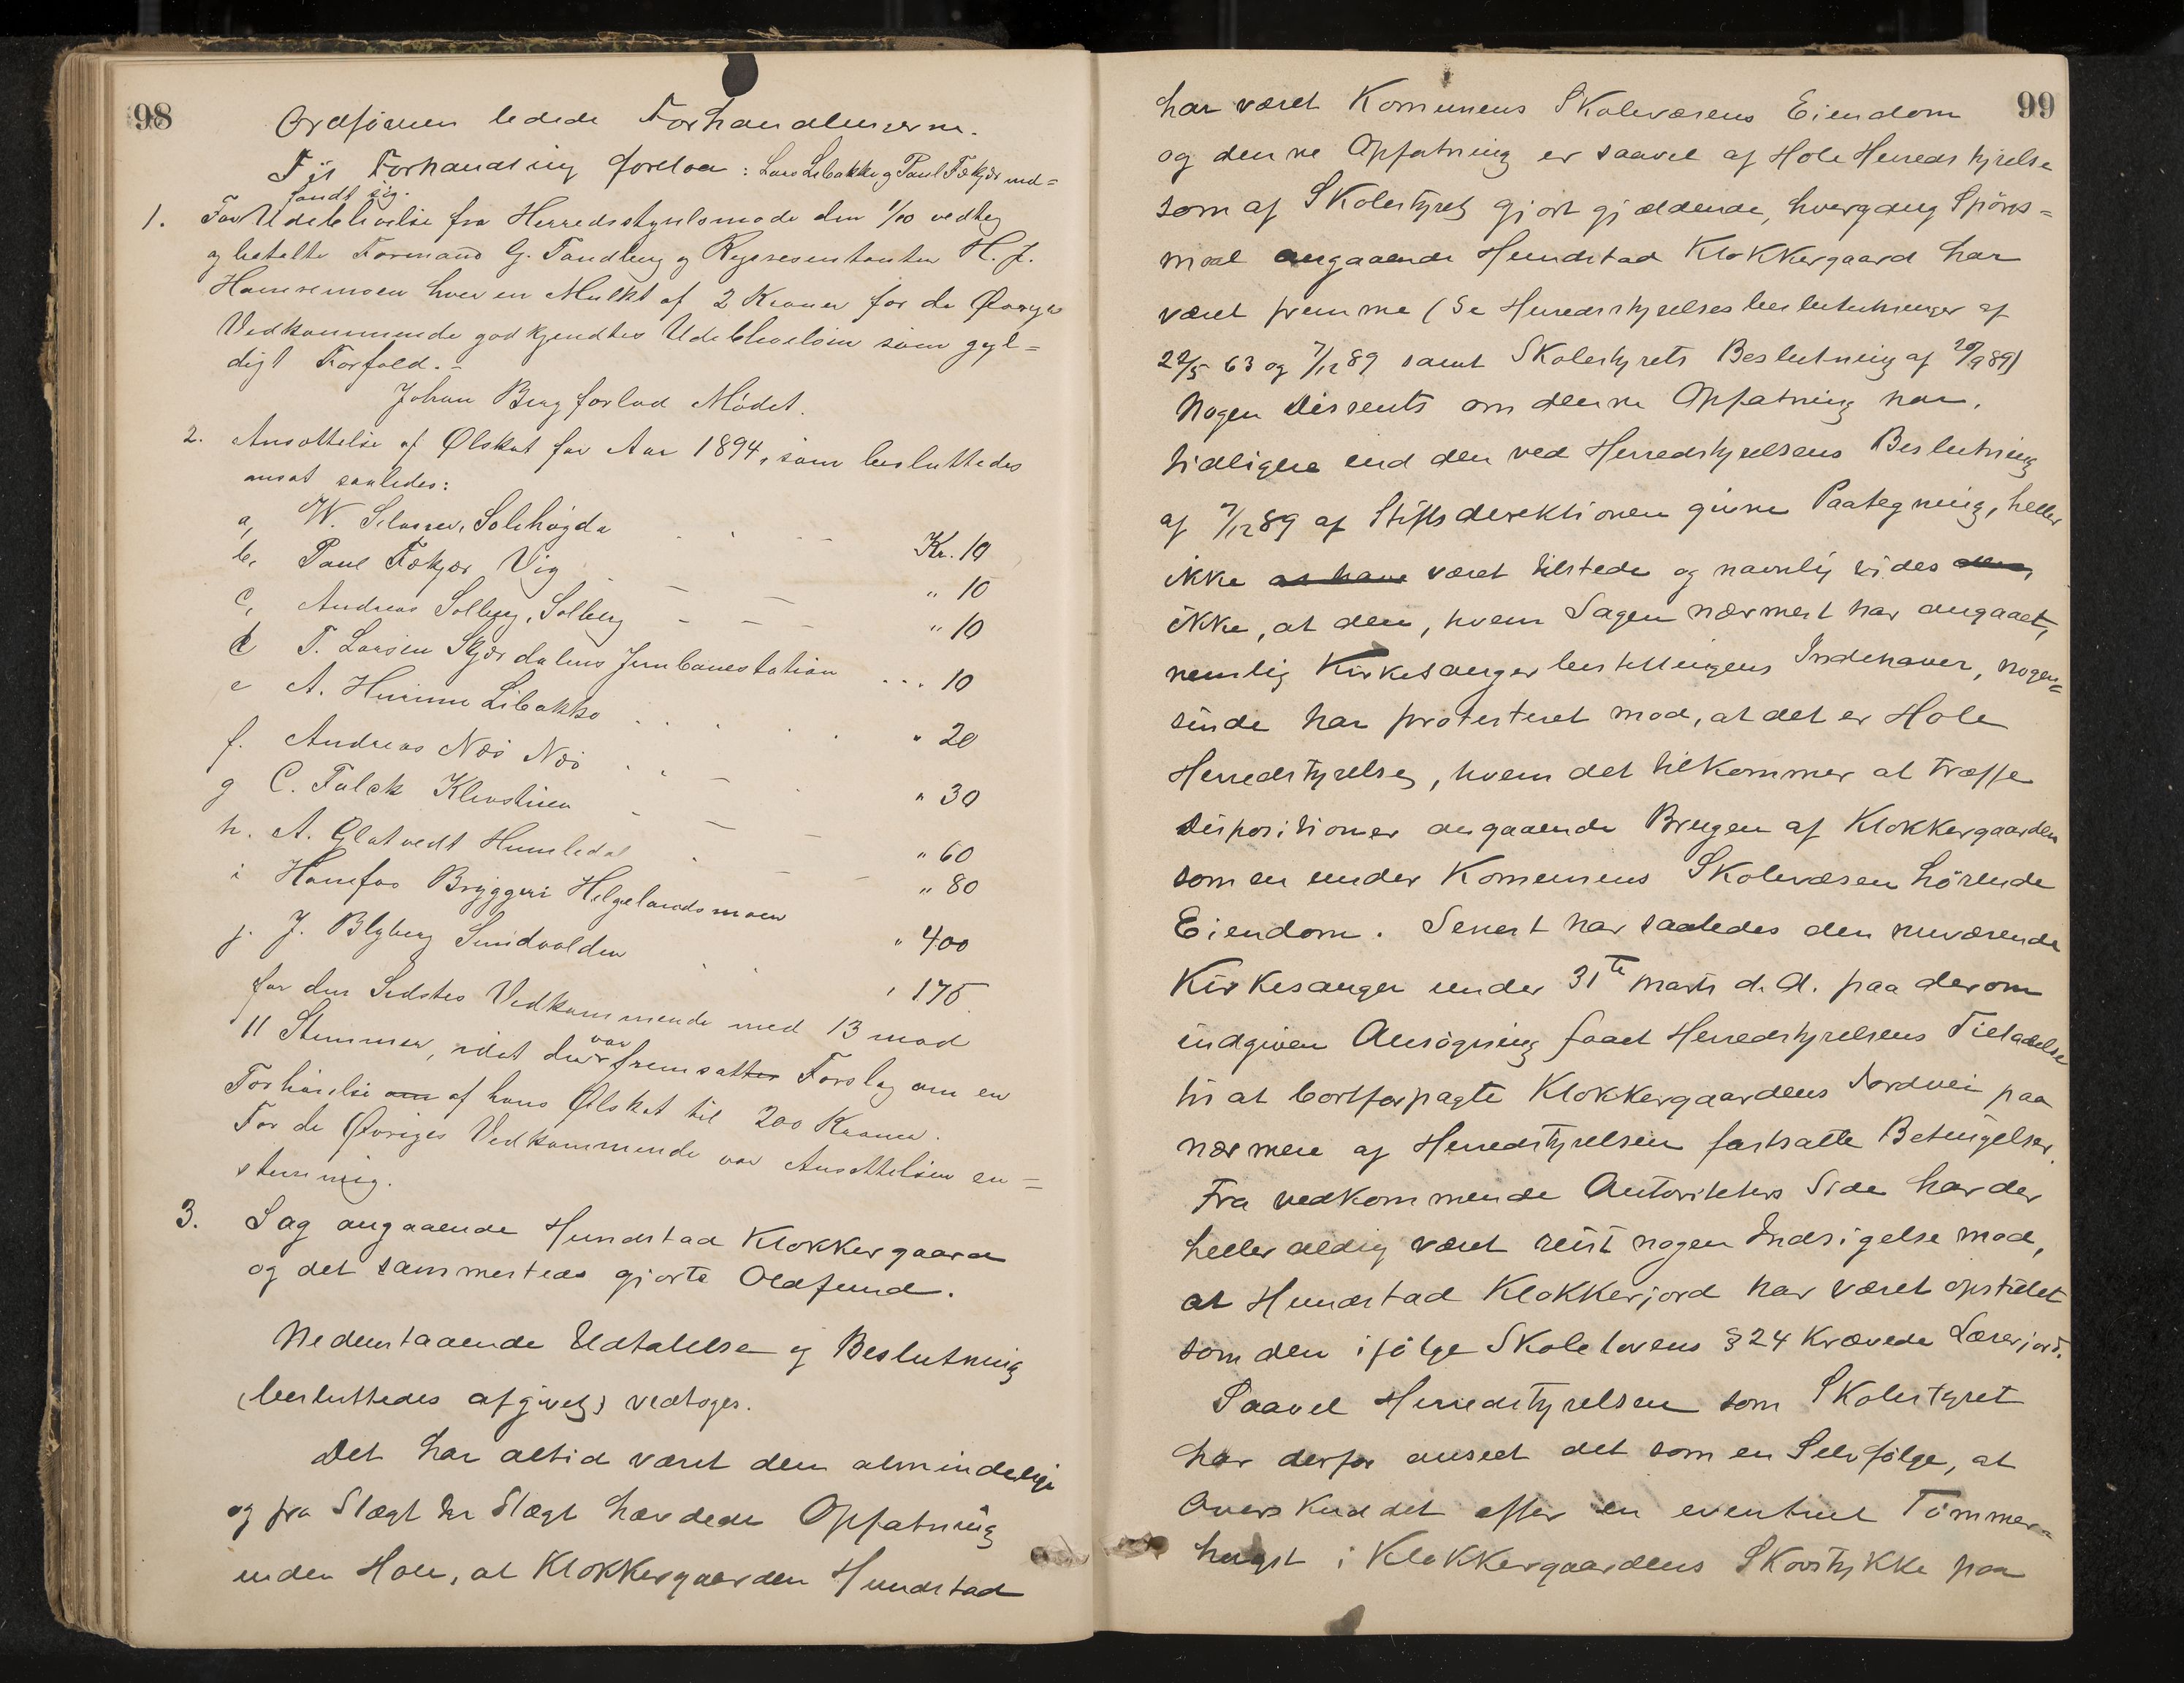 98
Ordføreren ledede Forhandlingerne.
Før Forhandling foretoges: Lars Libakke og Paul Fækjær ind=
fandt sig.
1. For Udeblivelse fra Herredsstyrelsmøde den 1/10 vedtog
og betalte Formand G. Tandberg og Repræsentanten H. J.
Hamremoen hver en Mulkt af 2 Kroner for de Øvriges
Vedkommende godkjendtes Udeblivelsen som gyl=
digt Forfald.-
Johan Berg forlod Mødet.
2. Ansættelse af Ølskat for Aar 1894, som besluttedes
ansat saaledes:
a, W. Solihøgda Kr. 10
b, Paul Fækjær Vig " 10
c, Andreas Solberg, Solberg " 10
d T. Larsen Skjærdalens Jernbanestation ... 10
e A. Libakke " 20
f. Andreas Næs Næs " 30
g C. Falck Klevstuen " 60
h. A. Glatvedt Humledal " 80
i Hønefos Bryggeri Helgelandsmoen " 400
j. J. Blyberg Sundvolden " 175
for den Sidstes Vedkommende med 13 mod
11 Stemmer, idet der var fremsat Forslag om en
Forhøielse af hans Ølskat til 200 Kroner.
For de Øvriges Vedkommende var Ansættelsen en=
stemmig.
3. Sag angaaende Hundstad Klokkergaard
og det sammesteds gjorte Oldfund.
Nedenstaaende Udtalelse og Beslutning
(besluttedes afgivet) vedtoges.
Det har altid været den almindelige
og fra Slægt til Slægt hævdede Opfatning
inden Hole, at Klokkergaarden Hundstad
99
har været Komunens Skolevæsens Eiendom
og denne Opfatning er saavel af Hole Herredstyrelse
som af Skolestyret gjort gjældende, hvergang Spörs=
maal angaaende Hundstad Klokkergaard har
været fremme (Se Herredsstyrelses beslutninger af
22/5 63 og 7/12 89 samt Skolestyrets Beslutning af 20/9 89)
Nogen Dissents om denne Opfatning har,
tidligere end den ved Herredstyrelsens Beslutning
af 7/12 89 af Stiftsdirektionen givne Paategning, heller
ikke at have været tilstede og navnlig vides den,
ikke, at den, hvem Sagen nærmest har angaaet,
nemlig Kirkesangerbestillingens Indehaver, nogen=
sinde har protesteret mod, at det er Hole
Herredstyrelse, hvem det tilkommer at træffe
Dispositioner angaaende Brugen af Klokkergaarden
som en under Komunens Skolevæsen hörende
Eiendom. Senest har saaledes den nuværende
Kirkesanger under 31te Marts d. A. paa derom
indgiven Ansögning faaet Herredstyrelsens Tilladelse
til at bortforpagte Klokkergaardens Jordvei paa
nærmere af Herredstyrelsen fastsatte Betingelser.
Fra vedkommende Autoriteters Side har der
heller aldrig været reist nogen Indsigelse mod,
at Hundstad Klokkerjord har været opstillet
som den ifölge Skolelovens § 24 krævede Lærerjord.
Saavel Herredstyrelsen som Skolestyret
har derfor anseet det som en Selvfölge, at
Overskuddet efter en eventuel Tömmer=
hugst i Klokkergaardens Skovstykke paa